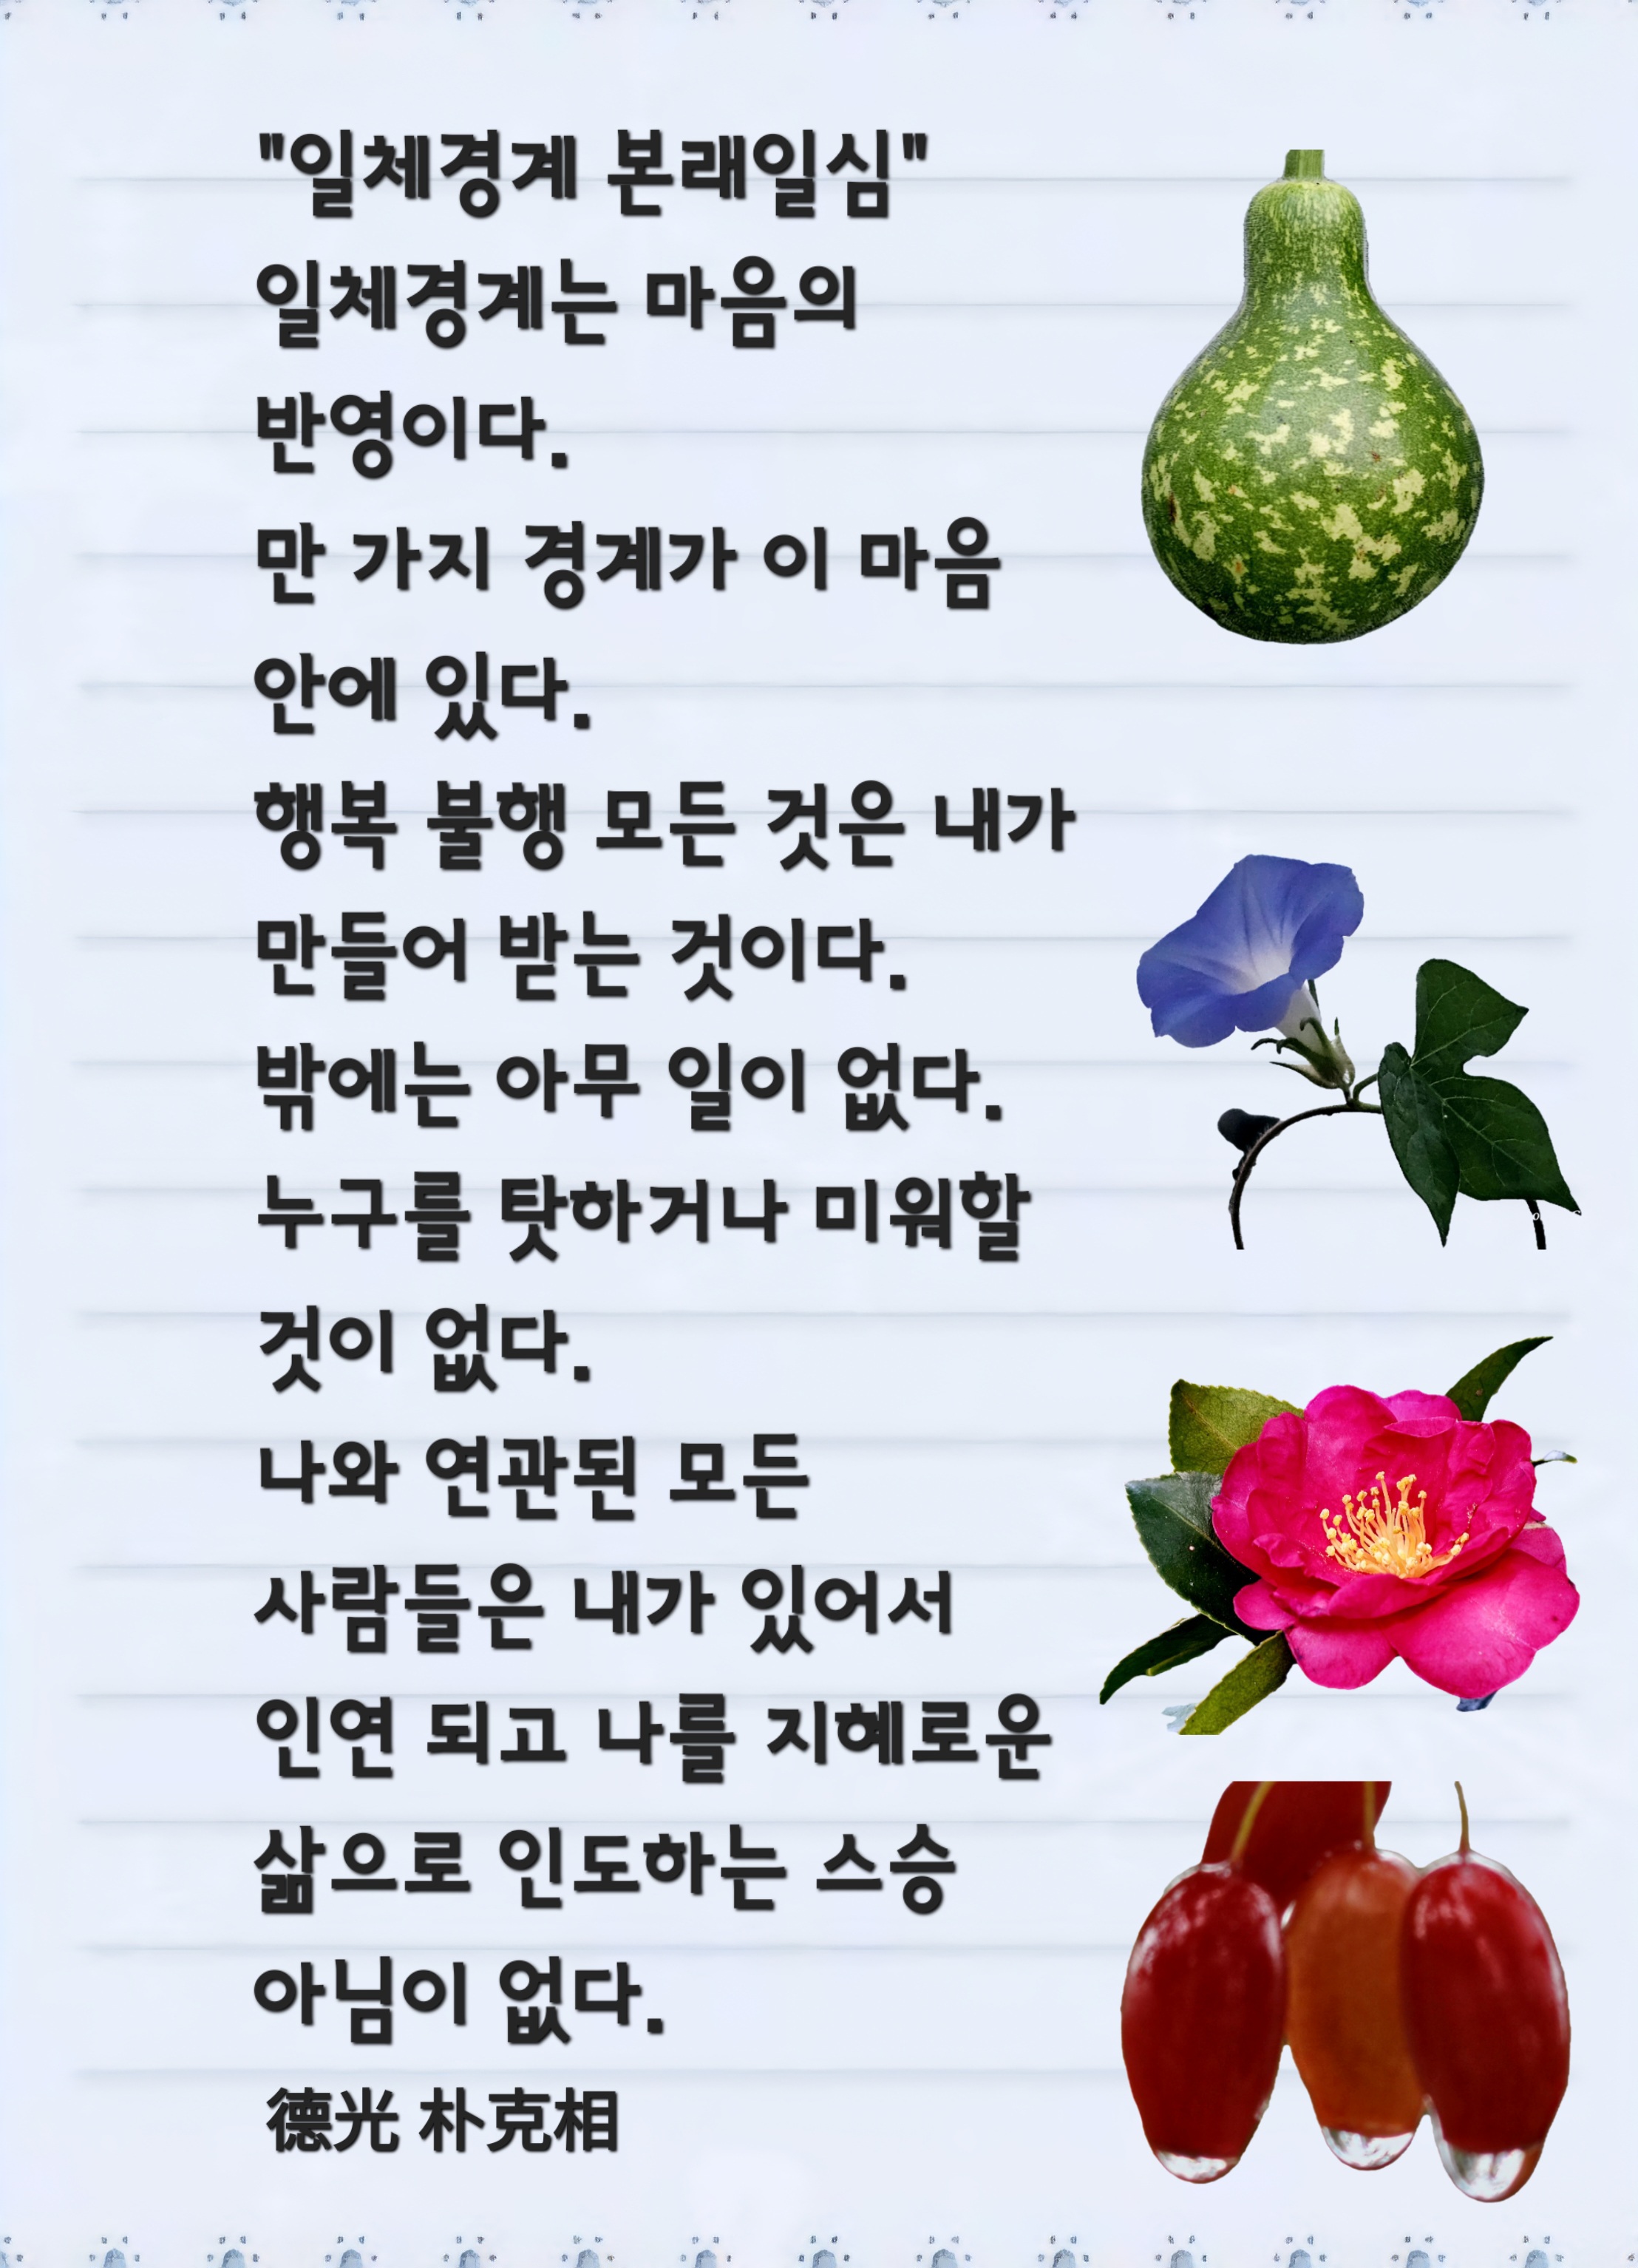 "일체경계 본래일심"
일체경계는 마음의
반영이다.
만 가지 경계가 이 마음
안에 있다.
행복 불행 모든 것은 내가
만들어 받는 것이다.
밖에는 아무 일이 없다.
누구를 탓하거나 미워할
것이 없다.
나와 연관된 모든
사람들은 내가 있어서
인연 되고 나를 지혜로운
삶으로 인도하는 스승
아님이 없다.
德光 朴克相